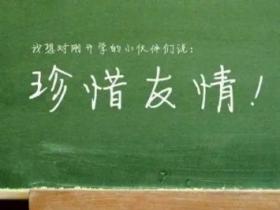 我想对刚开学的小伙伴们说：
珍惜友情！